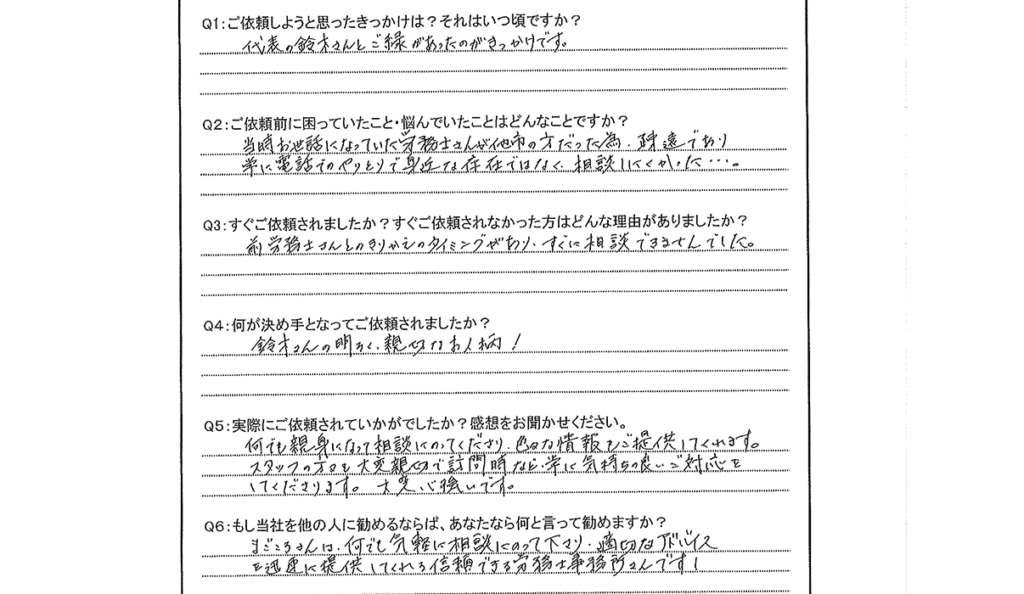 Q1：ご依頼しようと思ったきっかけは？それはいつ頃ですか？
代表の鈴木さんとご縁があったのがきっかけです。
Q2：ご依頼前に困っていたこと・悩んでいたことはどんなことですか？
当時お世話になっていた労務士さんが他市の方だった為、疎遠であり
常に電話でのやりとりで身近な存在ではなく、相談しにくかった…。
Q3：すぐご依頼されましたか？すぐご依頼されなかった方はどんな理由がありましたか？
前労務士さんとのきりかえのタイミングがあり、すぐに相談できませんでした。
Q4：何が決め手となってご依頼されましたか？
鈴木さんの明るく、親切なお人柄！
Q5：実際にご依頼されていかがでしたか？感想をお聞かせください。
何でも親身になって相談にのってくださり、色々な情報をご提供してくれます。
スタッフの方々も大変親切で訪問時など、常に気持ちの良いご対応を
してくださります。大変心強いです。
Q6：もし当社を他の人に勧めるならば、あなたなら何と言って勧めますか？
まごころさんは、何でも気軽に相談にのって下さり、適切なアドバイス
を迅速に提供してくれる信頼できる労務士事務所さんです！